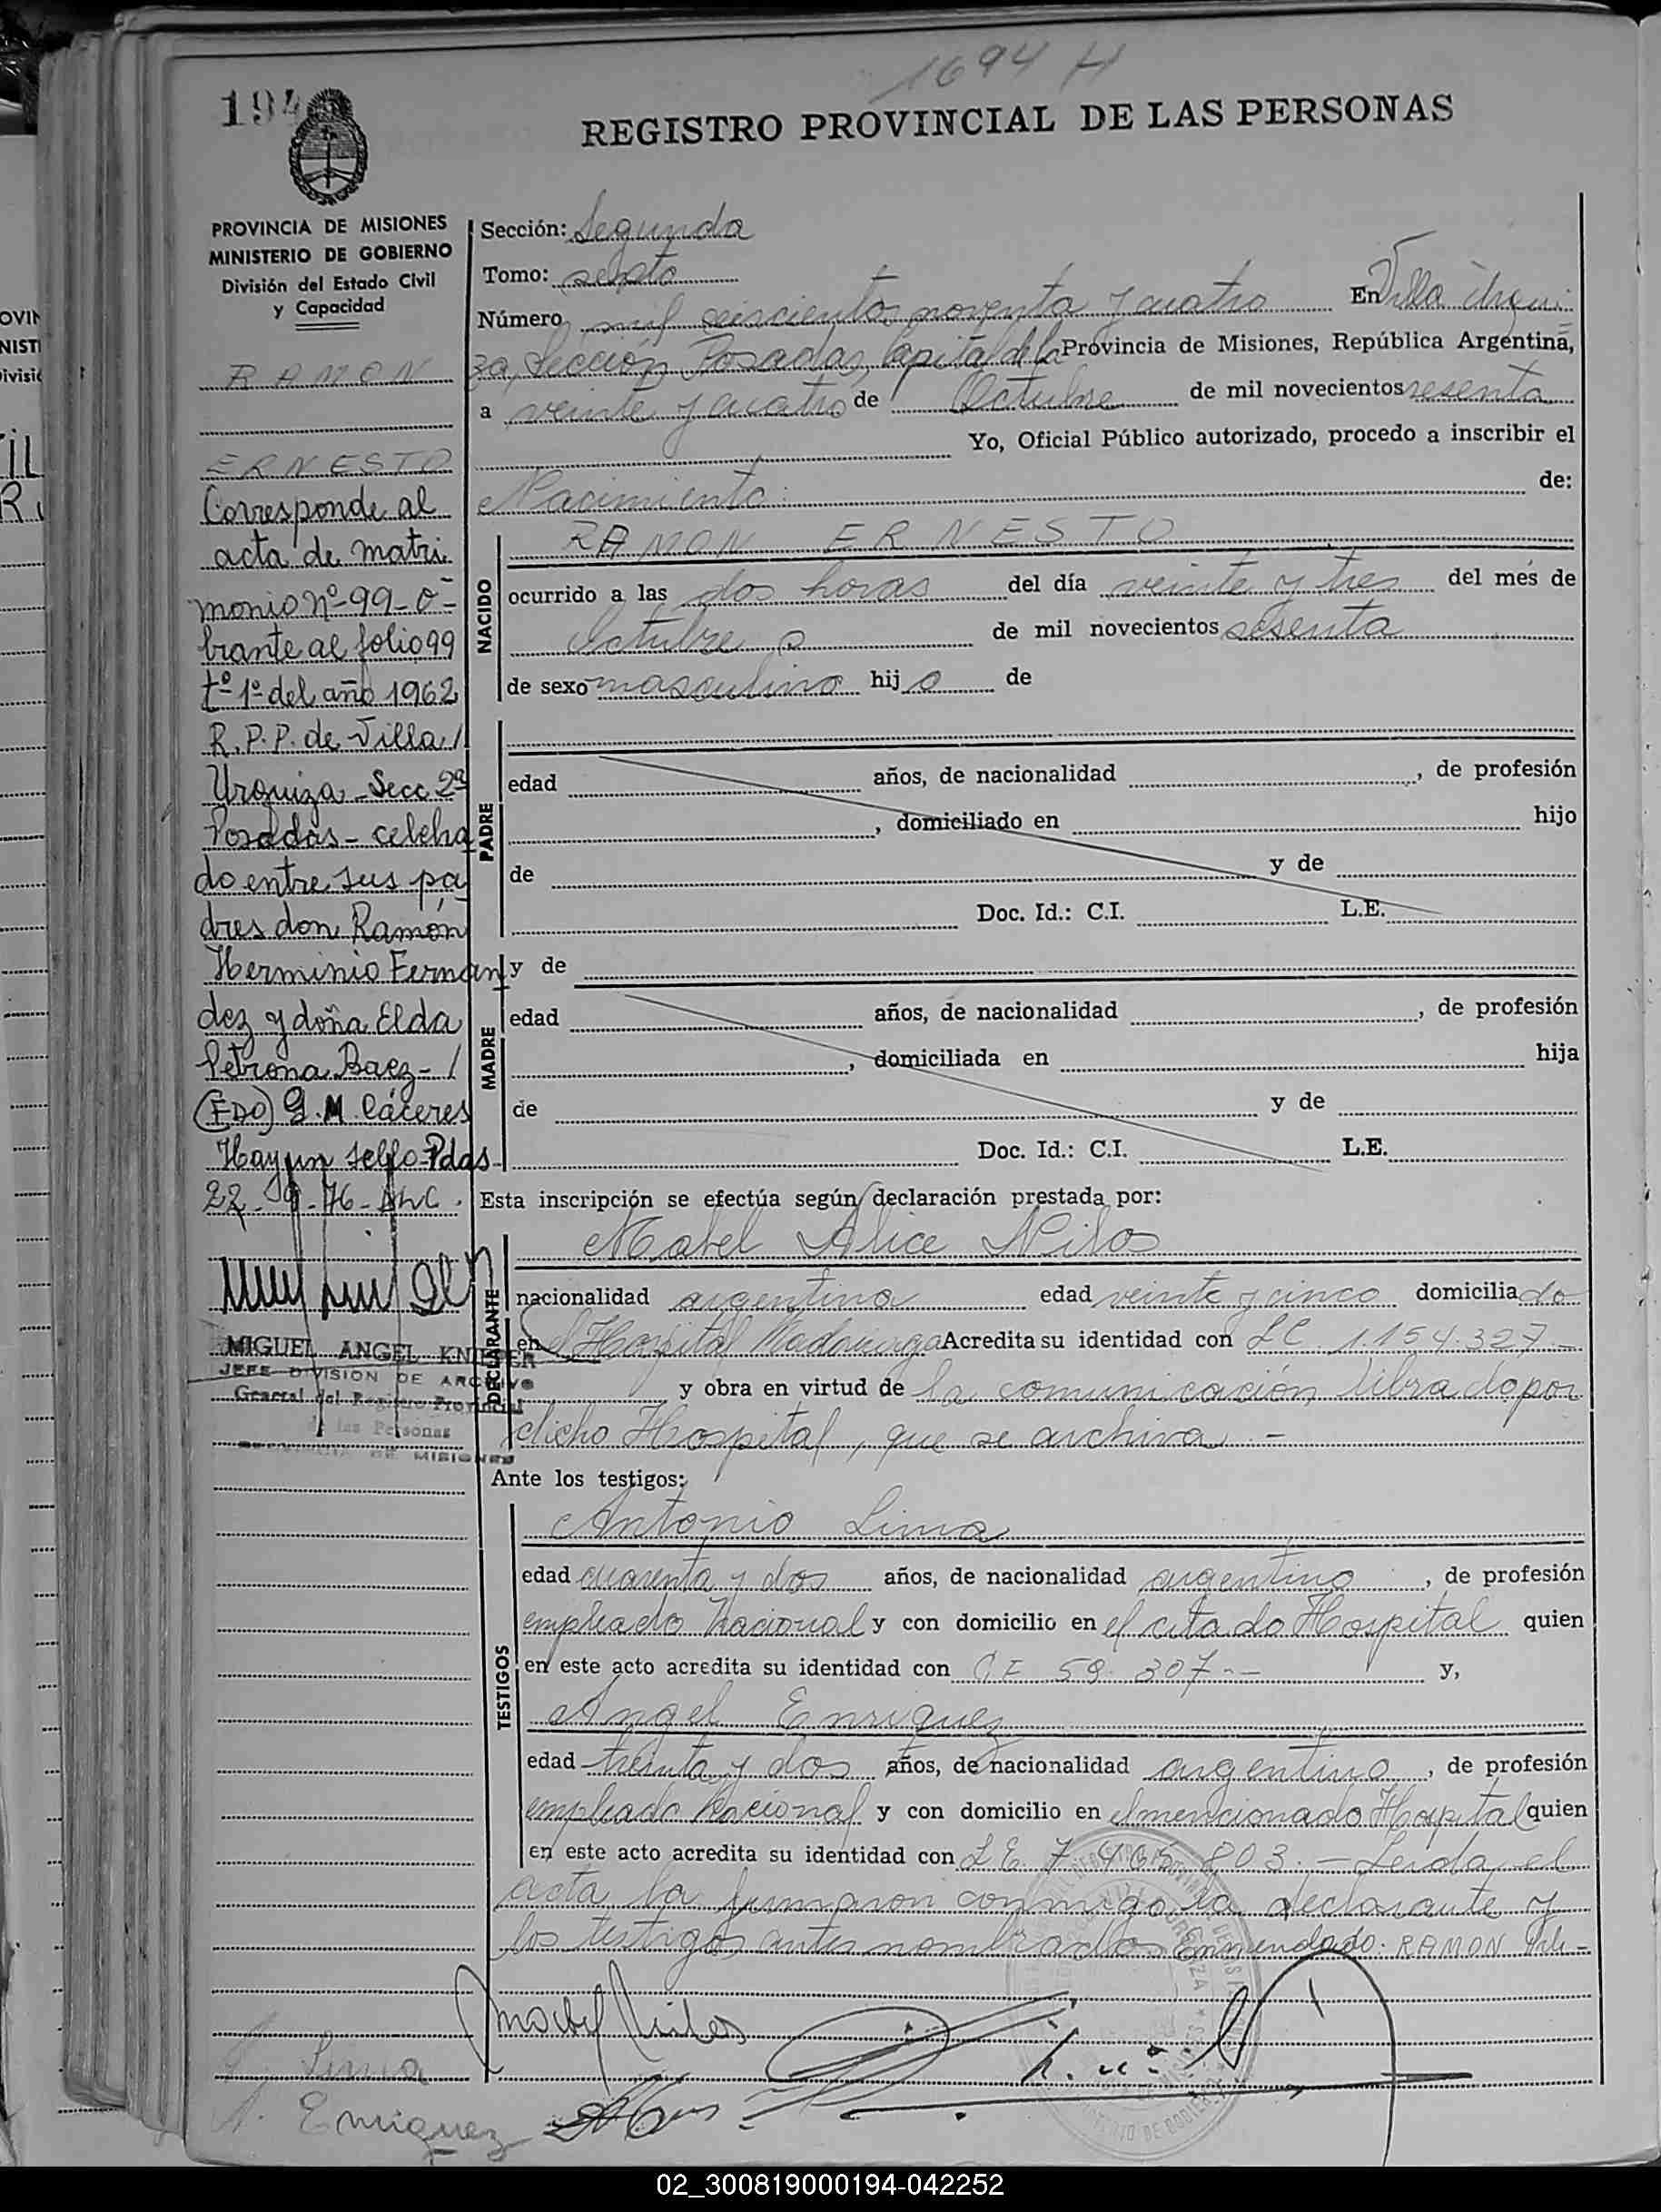 1694 H
194
REGISTRO PROVINCIAL DE LAS PERSONAS
PROVINCIA DE MISIONES
MINISTERIO DE GOBIERNO
División del Estado Civil
y Capacidad
RAMON
ERNESTO
Corresponde al
acta de matri
monio nº 99-o-
brante al folio 99
tº 1º del año 1962
R.P.P. de Villa /
Urquiza - Secc 2ª
Posadas - celebra
do entre sus pa
dres don Ramón
Herminio Fernan
dez y doña Elda
Petrona Baez - /
(FDO) G.M. Cáceres
Hay un sello - Pdas -
22-9-76-
MIGUEL ANGEL KNIEPER
JEFE DIVISION DE ARCHIVO
General del Registro Provincial
de las Personas
MISIONES
Sección: Segunda
Tomo: sexto
Número mil seiscientos noventa y cuatro En Villa Urqui
za, Sección Posadas, Capital de la Provincia de Misiones, República Argentina,
a veinte y cuatro de Octubre de mil novecientos sesenta
Yo, Oficial Público autorizado, procedo a inscribir el
Nacimiento de:
NACIDO
RAMON ERNESTO
ocurrido a las dos horas del día veinte y tres del mes de
Octubre de mil novecientos sesenta
de sexo masculino hijo de
PADRE
edad años, de nacionalidad , de profesión
, domiciliado en hijo
de y de
Doc. Id.: C.I. L.E.
y de
MADRE
edad años, de nacionalidad , de profesión
, domiciliada en hija
de y de
Doc. Id.: C.I. L.E.
Esta inscripción se efectúa según declaración prestada por:
DECLARANTE
Mabel Alice Nilos
nacionalidad argentina edad veinte y cinco domiciliado
en el Hospital Madariaga Acredita su identidad con LC 1.154.327 -
y obra en virtud de la comunicación librada por
dicho Hospital, que se archiva. -
Ante los testigos:
TESTIGOS
Antonio Lima
edad cuarenta y dos años, de nacionalidad argentino, de profesión
empleado Nacional y con domicilio en el citado Hospital quien
en este acto acredita su identidad con C.E 59.307.- y,
Angel Enriquez
edad treinta y dos años, de nacionalidad argentino, de profesión
empleado Nacional y con domicilio en el mencionado Hospital quien
en este acto acredita su identidad con L.E. 7.465.803. - Leida el
acta, la firmaron conmigo la declarante y
los testigos antes nombrados. Enmendado: RAMON Vale -
A. Lima
A. Enriquez
02_300819000194-042252